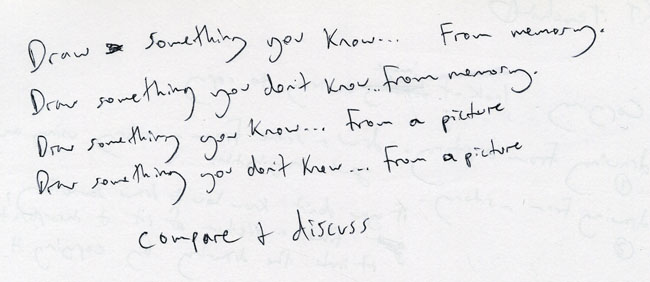 Draw something you know... From memory.
Draw something you don't know... From memory.
Draw something you know... From a picture
Draw something you don't know... From a picture
compare + discuss